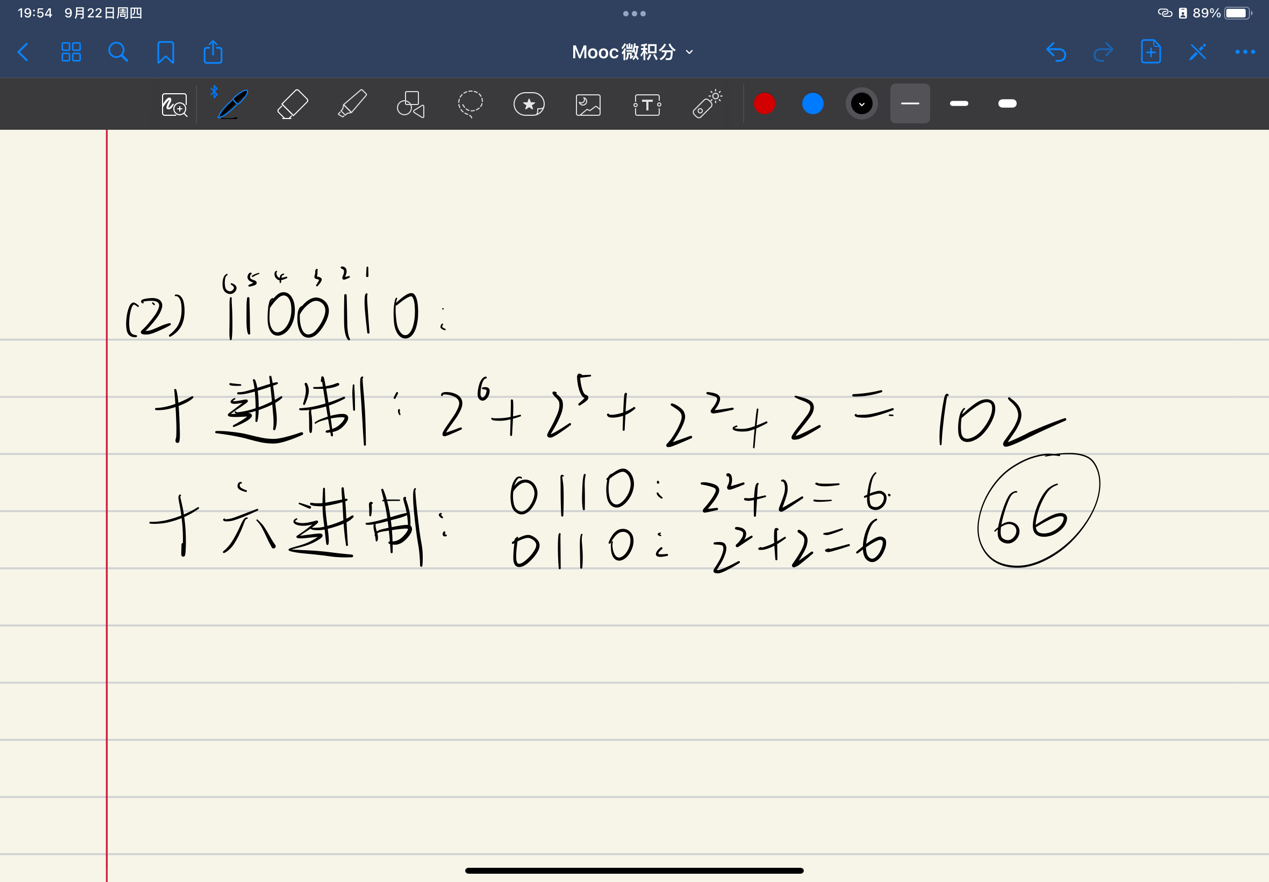 19:54 9月22日周四
89%
Mooc微积分
T
6 5 4 3 2 1
(2) 1100110:
十进制: 2⁶+2⁵+2²+2=102
十六进制: 0110: 2²+2=6 66
0110: 2²+2=6